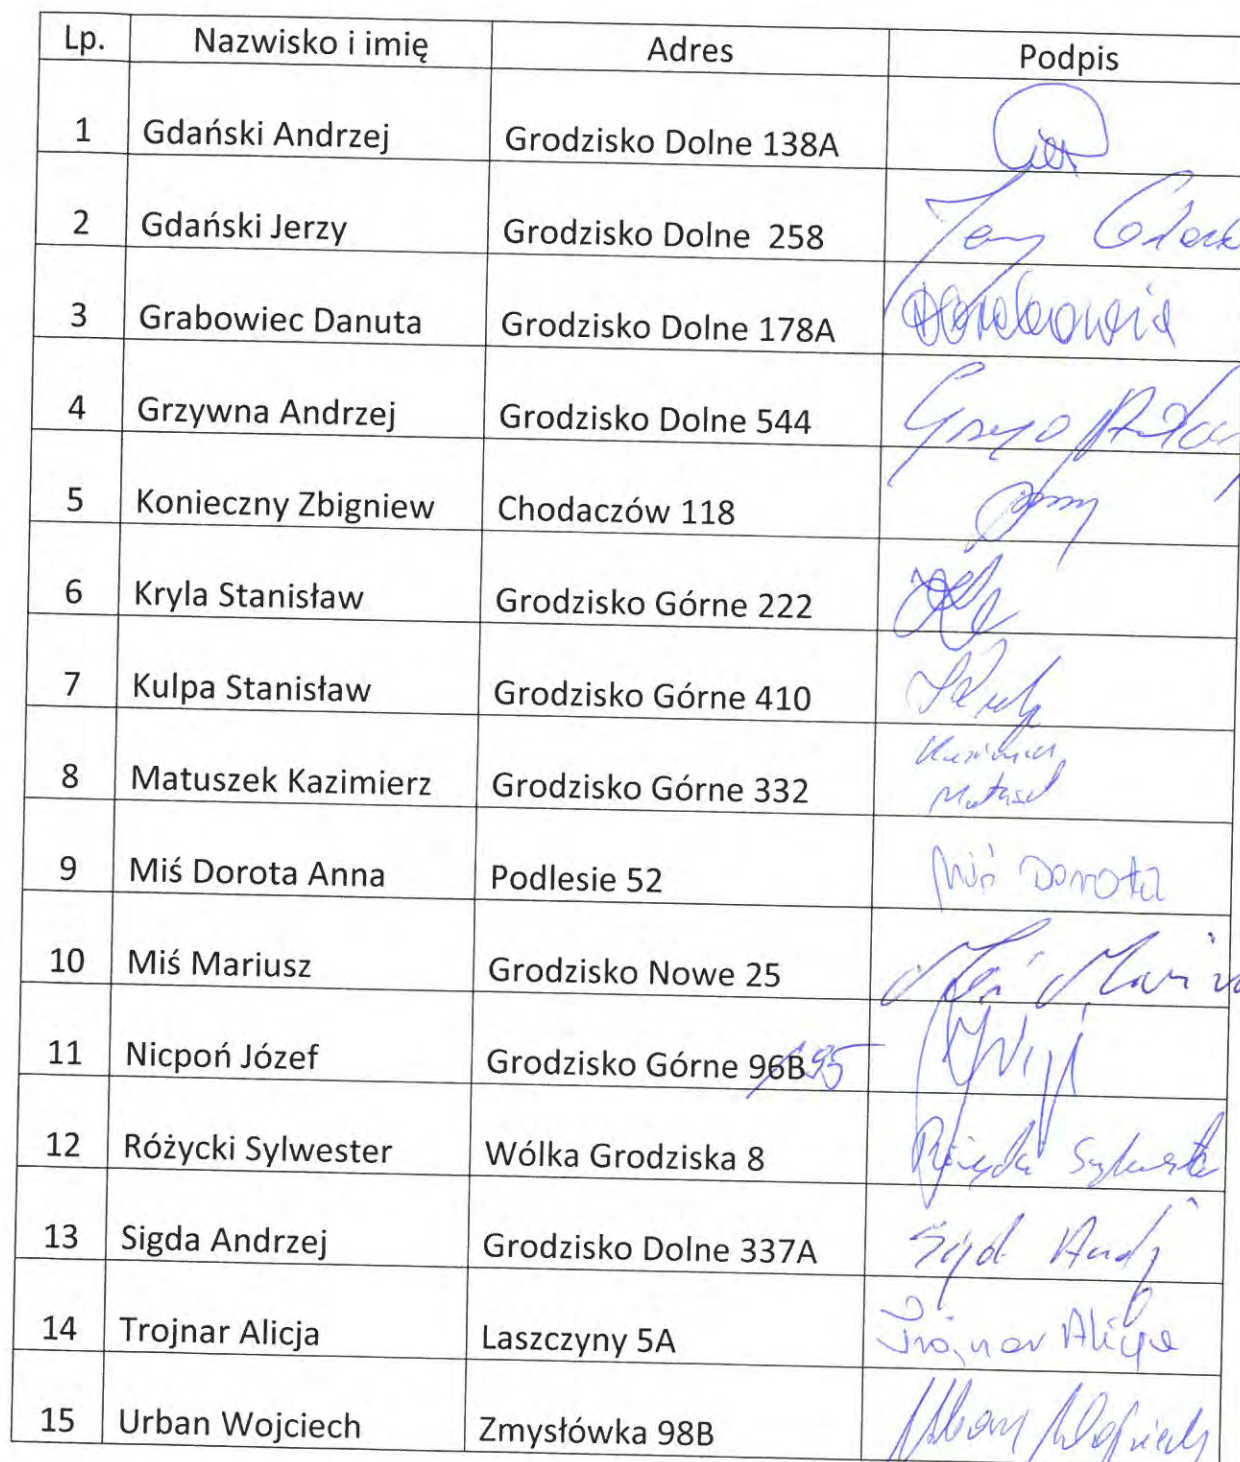 Lp. Nazwisko i imię Adres Podpis
1 Gdański Andrzej Grodzisko Dolne 138A
2 Gdański Jerzy Grodzisko Dolne 258 Jerzy
3 Grabowiec Danuta Grodzisko Dolne 178A
4 Grzywna Andrzej Grodzisko Dolne 544
5 Konieczny Zbigniew Chodaczów 118
6 Kryla Stanisław Grodzisko Górne 222
7 Kulpa Stanisław Grodzisko Górne 410
8 Matuszek Kazimierz Grodzisko Górne 332
9 Miś Dorota Anna Podlesie 52 Miś Dorota
10 Miś Mariusz Grodzisko Nowe 25 Miś
11 Nicpoń Józef Grodzisko Górne 96B 195
12 Różycki Sylwester Wólka Grodziska 8
13 Sigda Andrzej Grodzisko Dolne 337A
14 Trojnar Alicja Laszczyny 5A Trojnar Alicja
15 Urban Wojciech Zmysłówka 98B Urban Wojciech